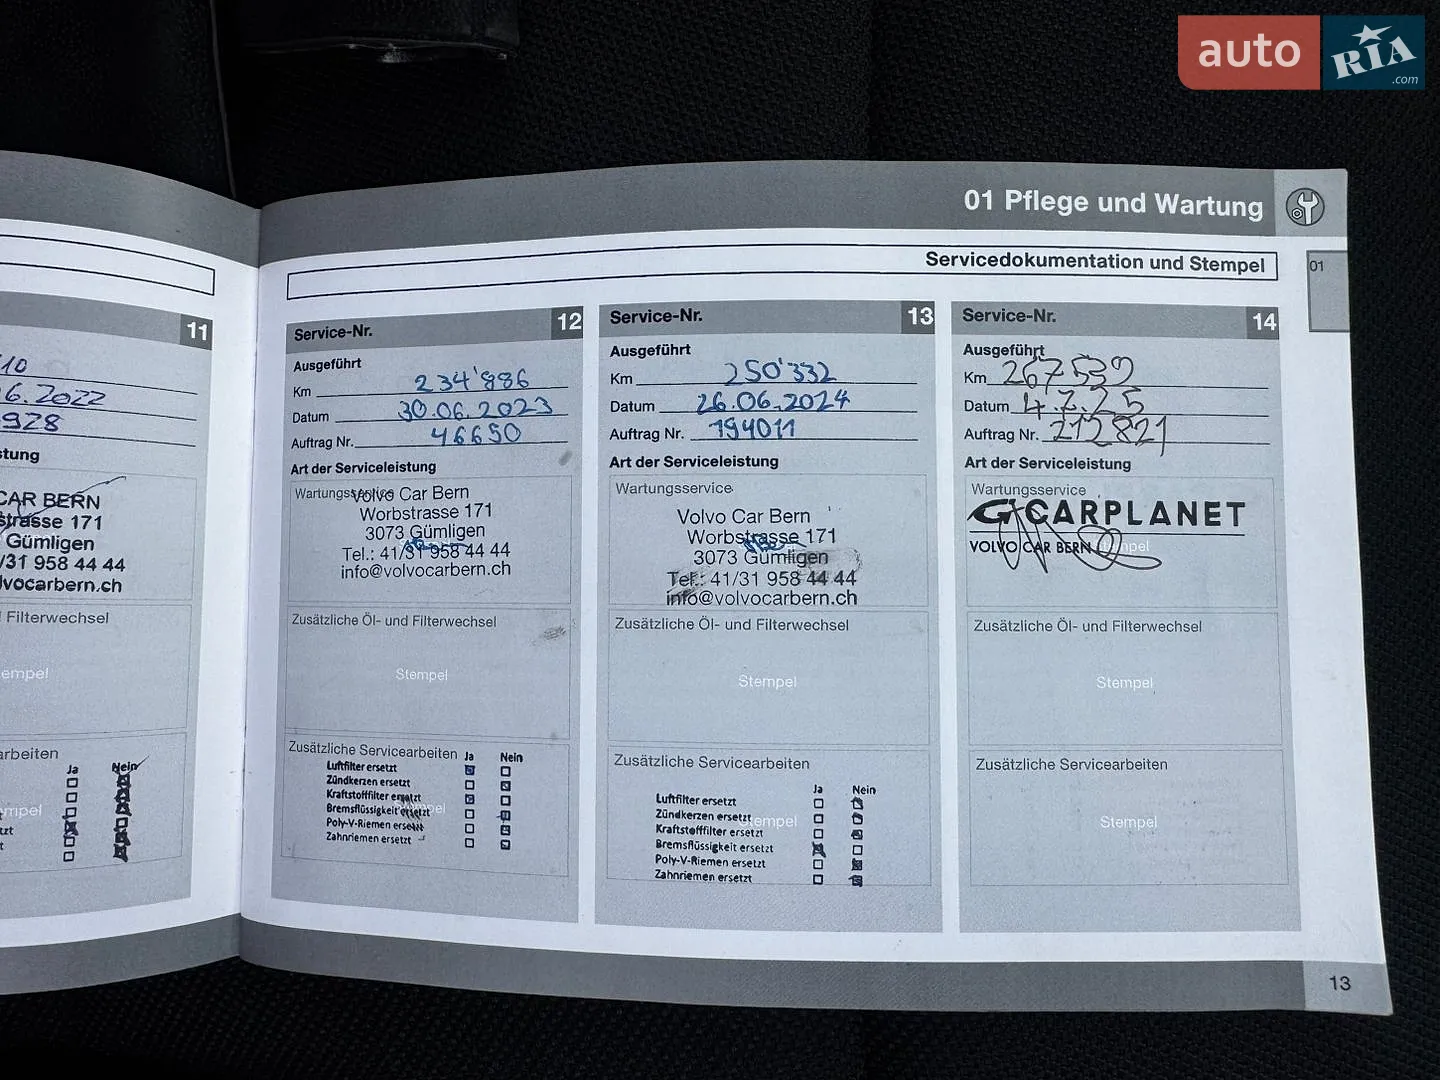 auto RIA .com
01 Pflege und Wartung
Servicedokumentation und Stempel
01
11
6.2022
928
CAR BERN
strasse 171
Gümligen
/31 958 44 44
lvocarbern.ch
Filterwechsel
empel
arbeiten
Ja Nein
mpel
Service-Nr. 12
Ausgeführt
Km 234'886
Datum 30.06.2023
Auftrag Nr. 46650
Art der Serviceleistung
Wartungsservice
Volvo Car Bern
Worbstrasse 171
3073 Gümligen
Tel.: 41/31 958 44 44
info@volvocarbern.ch
Zusätzliche Öl- und Filterwechsel
Stempel
Zusätzliche Servicearbeiten
Ja Nein
Luftfilter ersetzt
Zündkerzen ersetzt
Kraftstofffilter ersetzt
Bremsflüssigkeit ersetzt
Poly-V-Riemen ersetzt
Zahnriemen ersetzt
Service-Nr. 13
Ausgeführt
Km 250'332
Datum 26.06.2024
Auftrag Nr. 194011
Art der Serviceleistung
Wartungsservice
Volvo Car Bern
Worbstrasse 171
3073 Gümligen
Tel.: 41/31 958 44 44
info@volvocarbern.ch
Zusätzliche Öl- und Filterwechsel
Stempel
Zusätzliche Servicearbeiten
Ja Nein
Luftfilter ersetzt
Zündkerzen ersetzt
Kraftstofffilter ersetzt
Bremsflüssigkeit ersetzt
Poly-V-Riemen ersetzt
Zahnriemen ersetzt
Stempel
Service-Nr. 14
Ausgeführt
Km 267539
Datum 4.7.25
Auftrag Nr. 212821
Art der Serviceleistung
Wartungsservice
CARPLANET
VOLVO CAR BERN
Zusätzliche Öl- und Filterwechsel
Stempel
Zusätzliche Servicearbeiten
Stempel
13